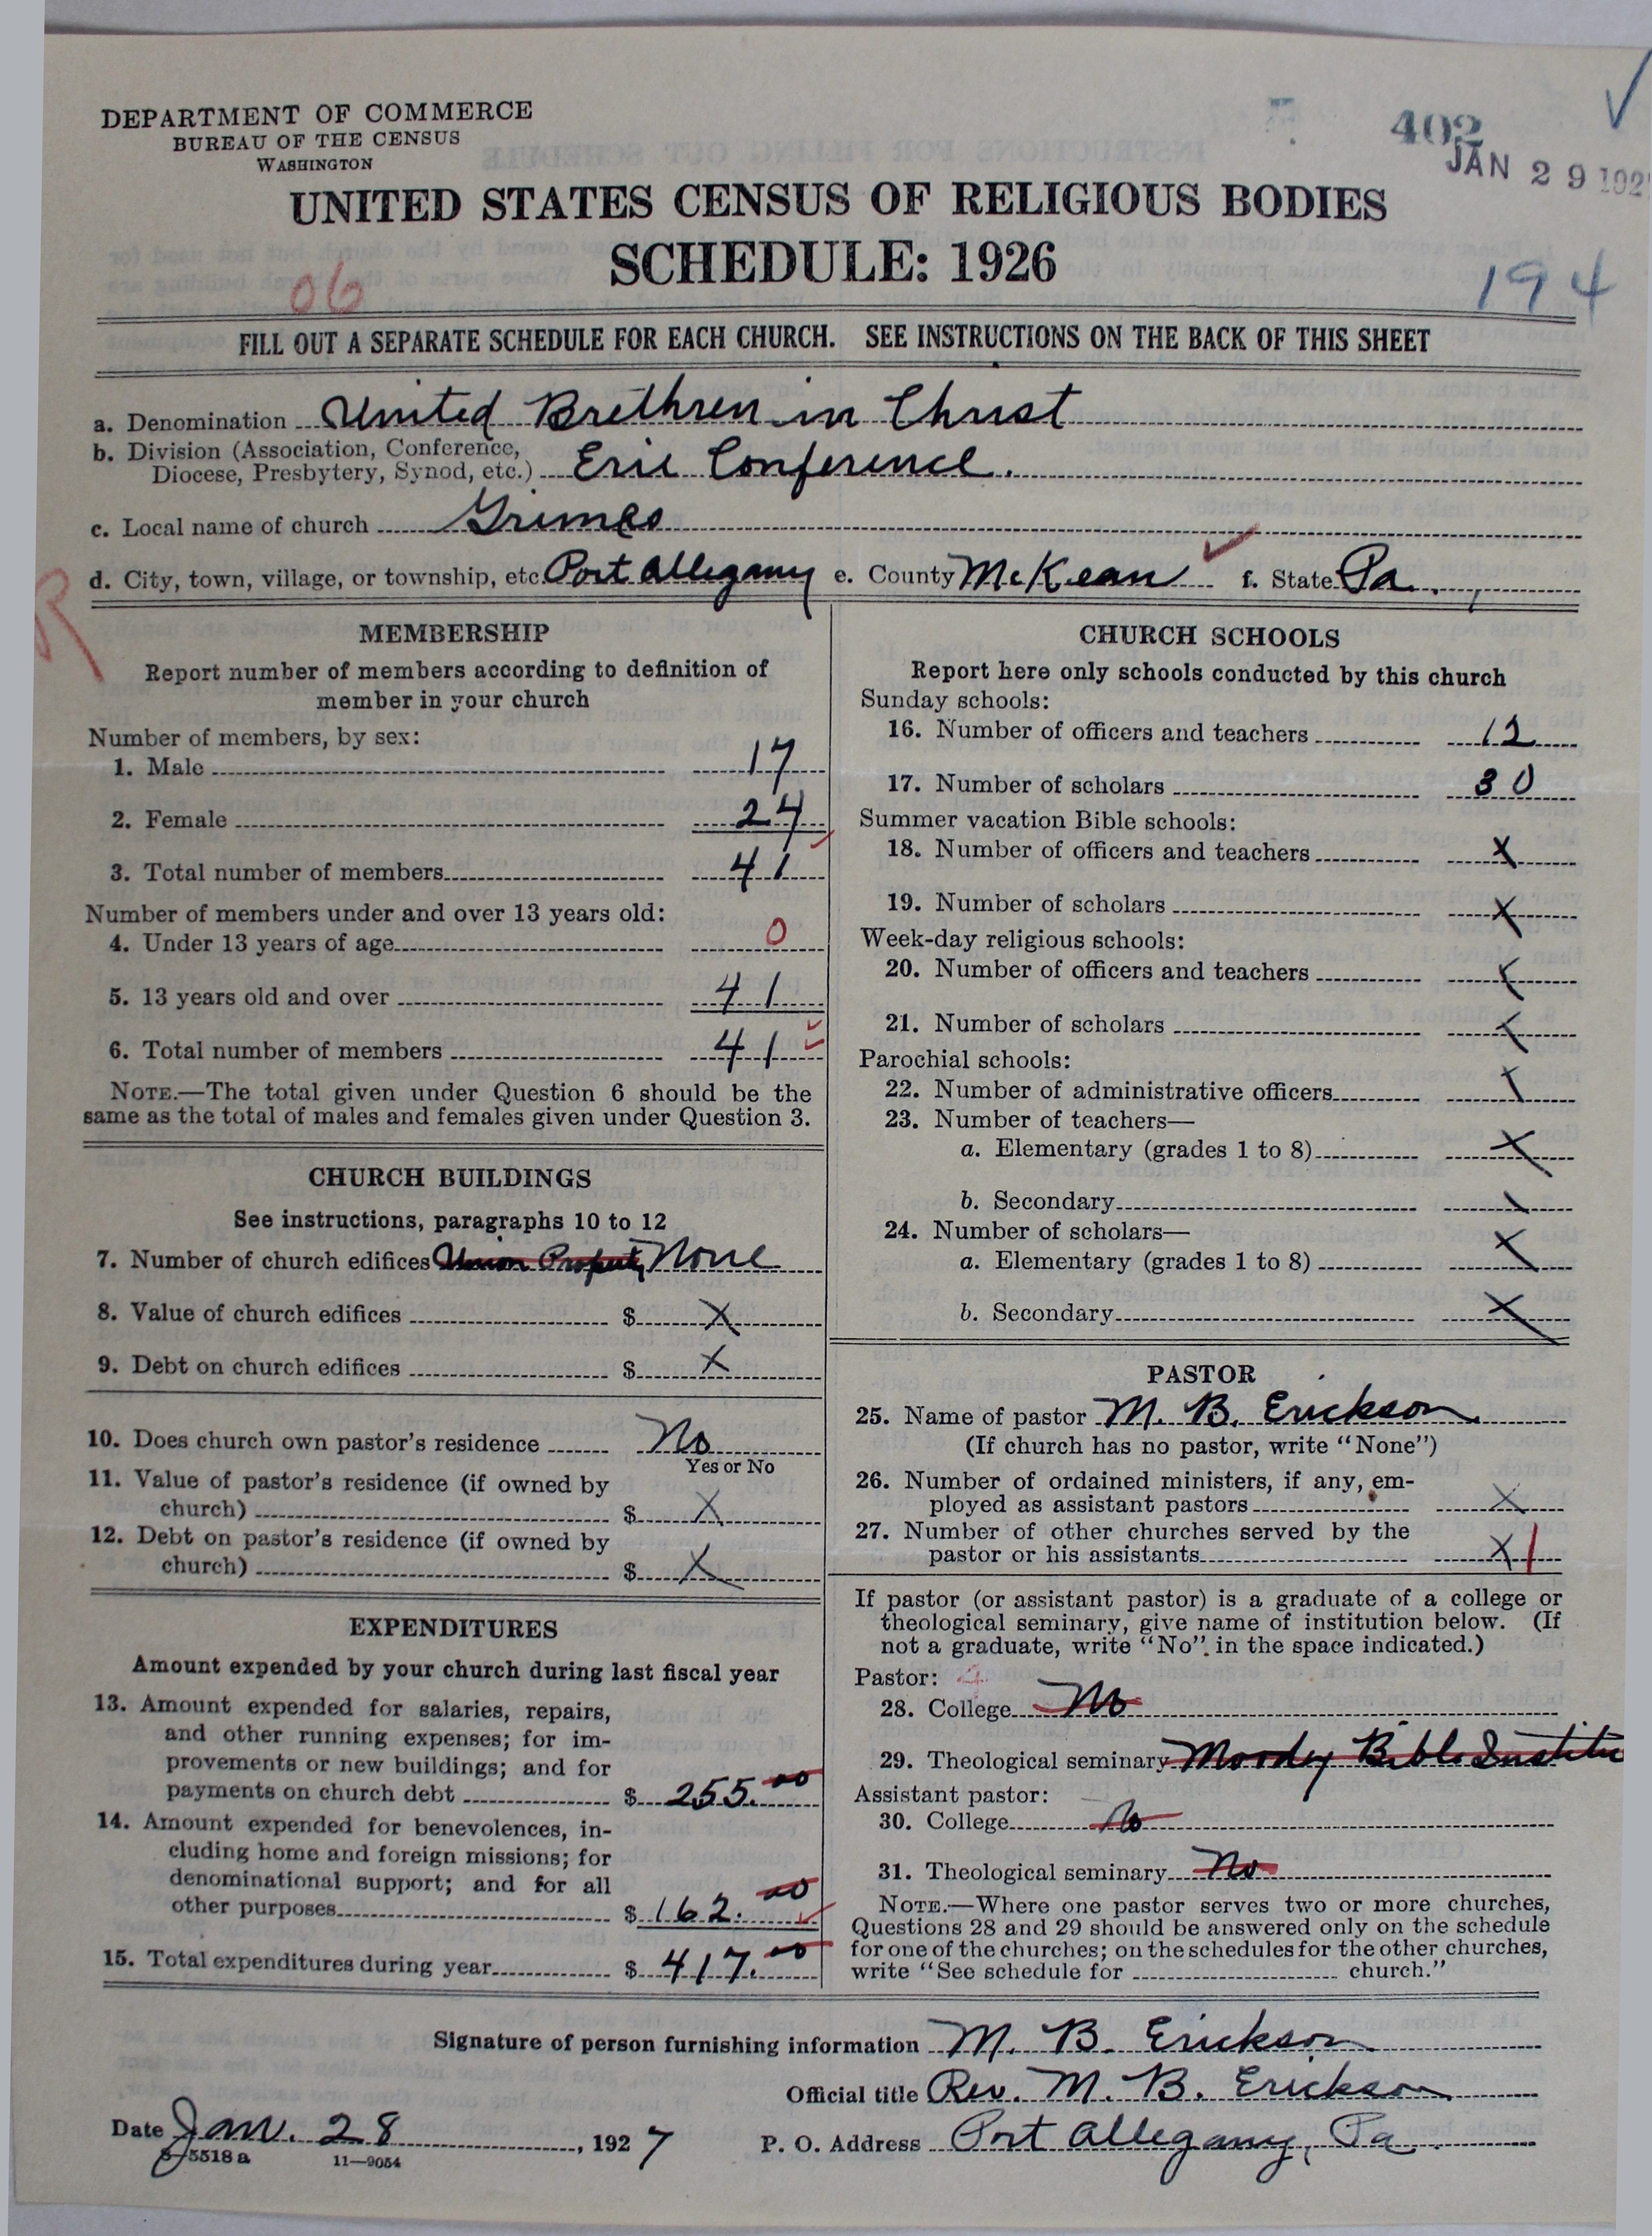 DEPARTMENT OF COMMERCE
BUREAU OF THE CENSUS
WASHINGTON
402
JAN 29 192
UNITED STATES CENSUS OF RELIGIOUS BODIES
SCHEDULE: 1926
06
194
FILL OUT A SEPARATE SCHEDULE FOR EACH CHURCH. SEE INSTRUCTIONS ON THE BACK OF THIS SHEET
a. Denomination United Brethren in Christ
b. Division (Association, Conference,
Diocese, Presbytery, Synod, etc.) Erie Conference.
c. Local name of church Grimes
d. City, town, village, or township, etc. Port Allegany e. County McKean f. State Pa.
R
MEMBERSHIP
Report number of members according to definition of
member in your church
Number of members, by sex:
1. Male 17
2. Female 24
3. Total number of members 41
Number of members under and over 13 years old:
4. Under 13 years of age 0
5. 13 years old and over 41
6. Total number of members 41
NOTE.—The total given under Question 6 should be the
same as the total of males and females given under Question 3.
CHURCH BUILDINGS
See instructions, paragraphs 10 to 12
7. Number of church edifices Union Property None
8. Value of church edifices $ X
9. Debt on church edifices $ X
10. Does church own pastor's residence No
Yes or No
11. Value of pastor's residence (if owned by
church) $ X
12. Debt on pastor's residence (if owned by
church) $ X
EXPENDITURES
Amount expended by your church during last fiscal year
13. Amount expended for salaries, repairs,
and other running expenses; for im-
provements or new buildings; and for
payments on church debt $ 255.00
14. Amount expended for benevolences, in-
cluding home and foreign missions; for
denominational support; and for all
other purposes $ 162.00
15. Total expenditures during year $ 417.00
CHURCH SCHOOLS
Report here only schools conducted by this church
Sunday schools:
16. Number of officers and teachers 12
17. Number of scholars 30
Summer vacation Bible schools:
18. Number of officers and teachers X
19. Number of scholars X
Week-day religious schools:
20. Number of officers and teachers X
21. Number of scholars X
Parochial schools:
22. Number of administrative officers X
23. Number of teachers—
a. Elementary (grades 1 to 8) X
b. Secondary X
24. Number of scholars—
a. Elementary (grades 1 to 8) X
b. Secondary X
PASTOR
25. Name of pastor M. B. Erickson
(If church has no pastor, write "None")
26. Number of ordained ministers, if any, em-
ployed as assistant pastors X
27. Number of other churches served by the
pastor or his assistants X 1
If pastor (or assistant pastor) is a graduate of a college or
theological seminary, give name of institution below. (If
not a graduate, write "No" in the space indicated.)
Pastor: 4
28. College No
29. Theological seminary Moody Bible Institu
Assistant pastor:
30. College No
31. Theological seminary No
NOTE.—Where one pastor serves two or more churches,
Questions 28 and 29 should be answered only on the schedule
for one of the churches; on the schedules for the other churches,
write "See schedule for church."
Signature of person furnishing information M. B. Erickson
Official title Rev. M. B. Erickson
Date Jan. 28, 1927 P. O. Address Port Allegany, Pa.
5518a 11—9054